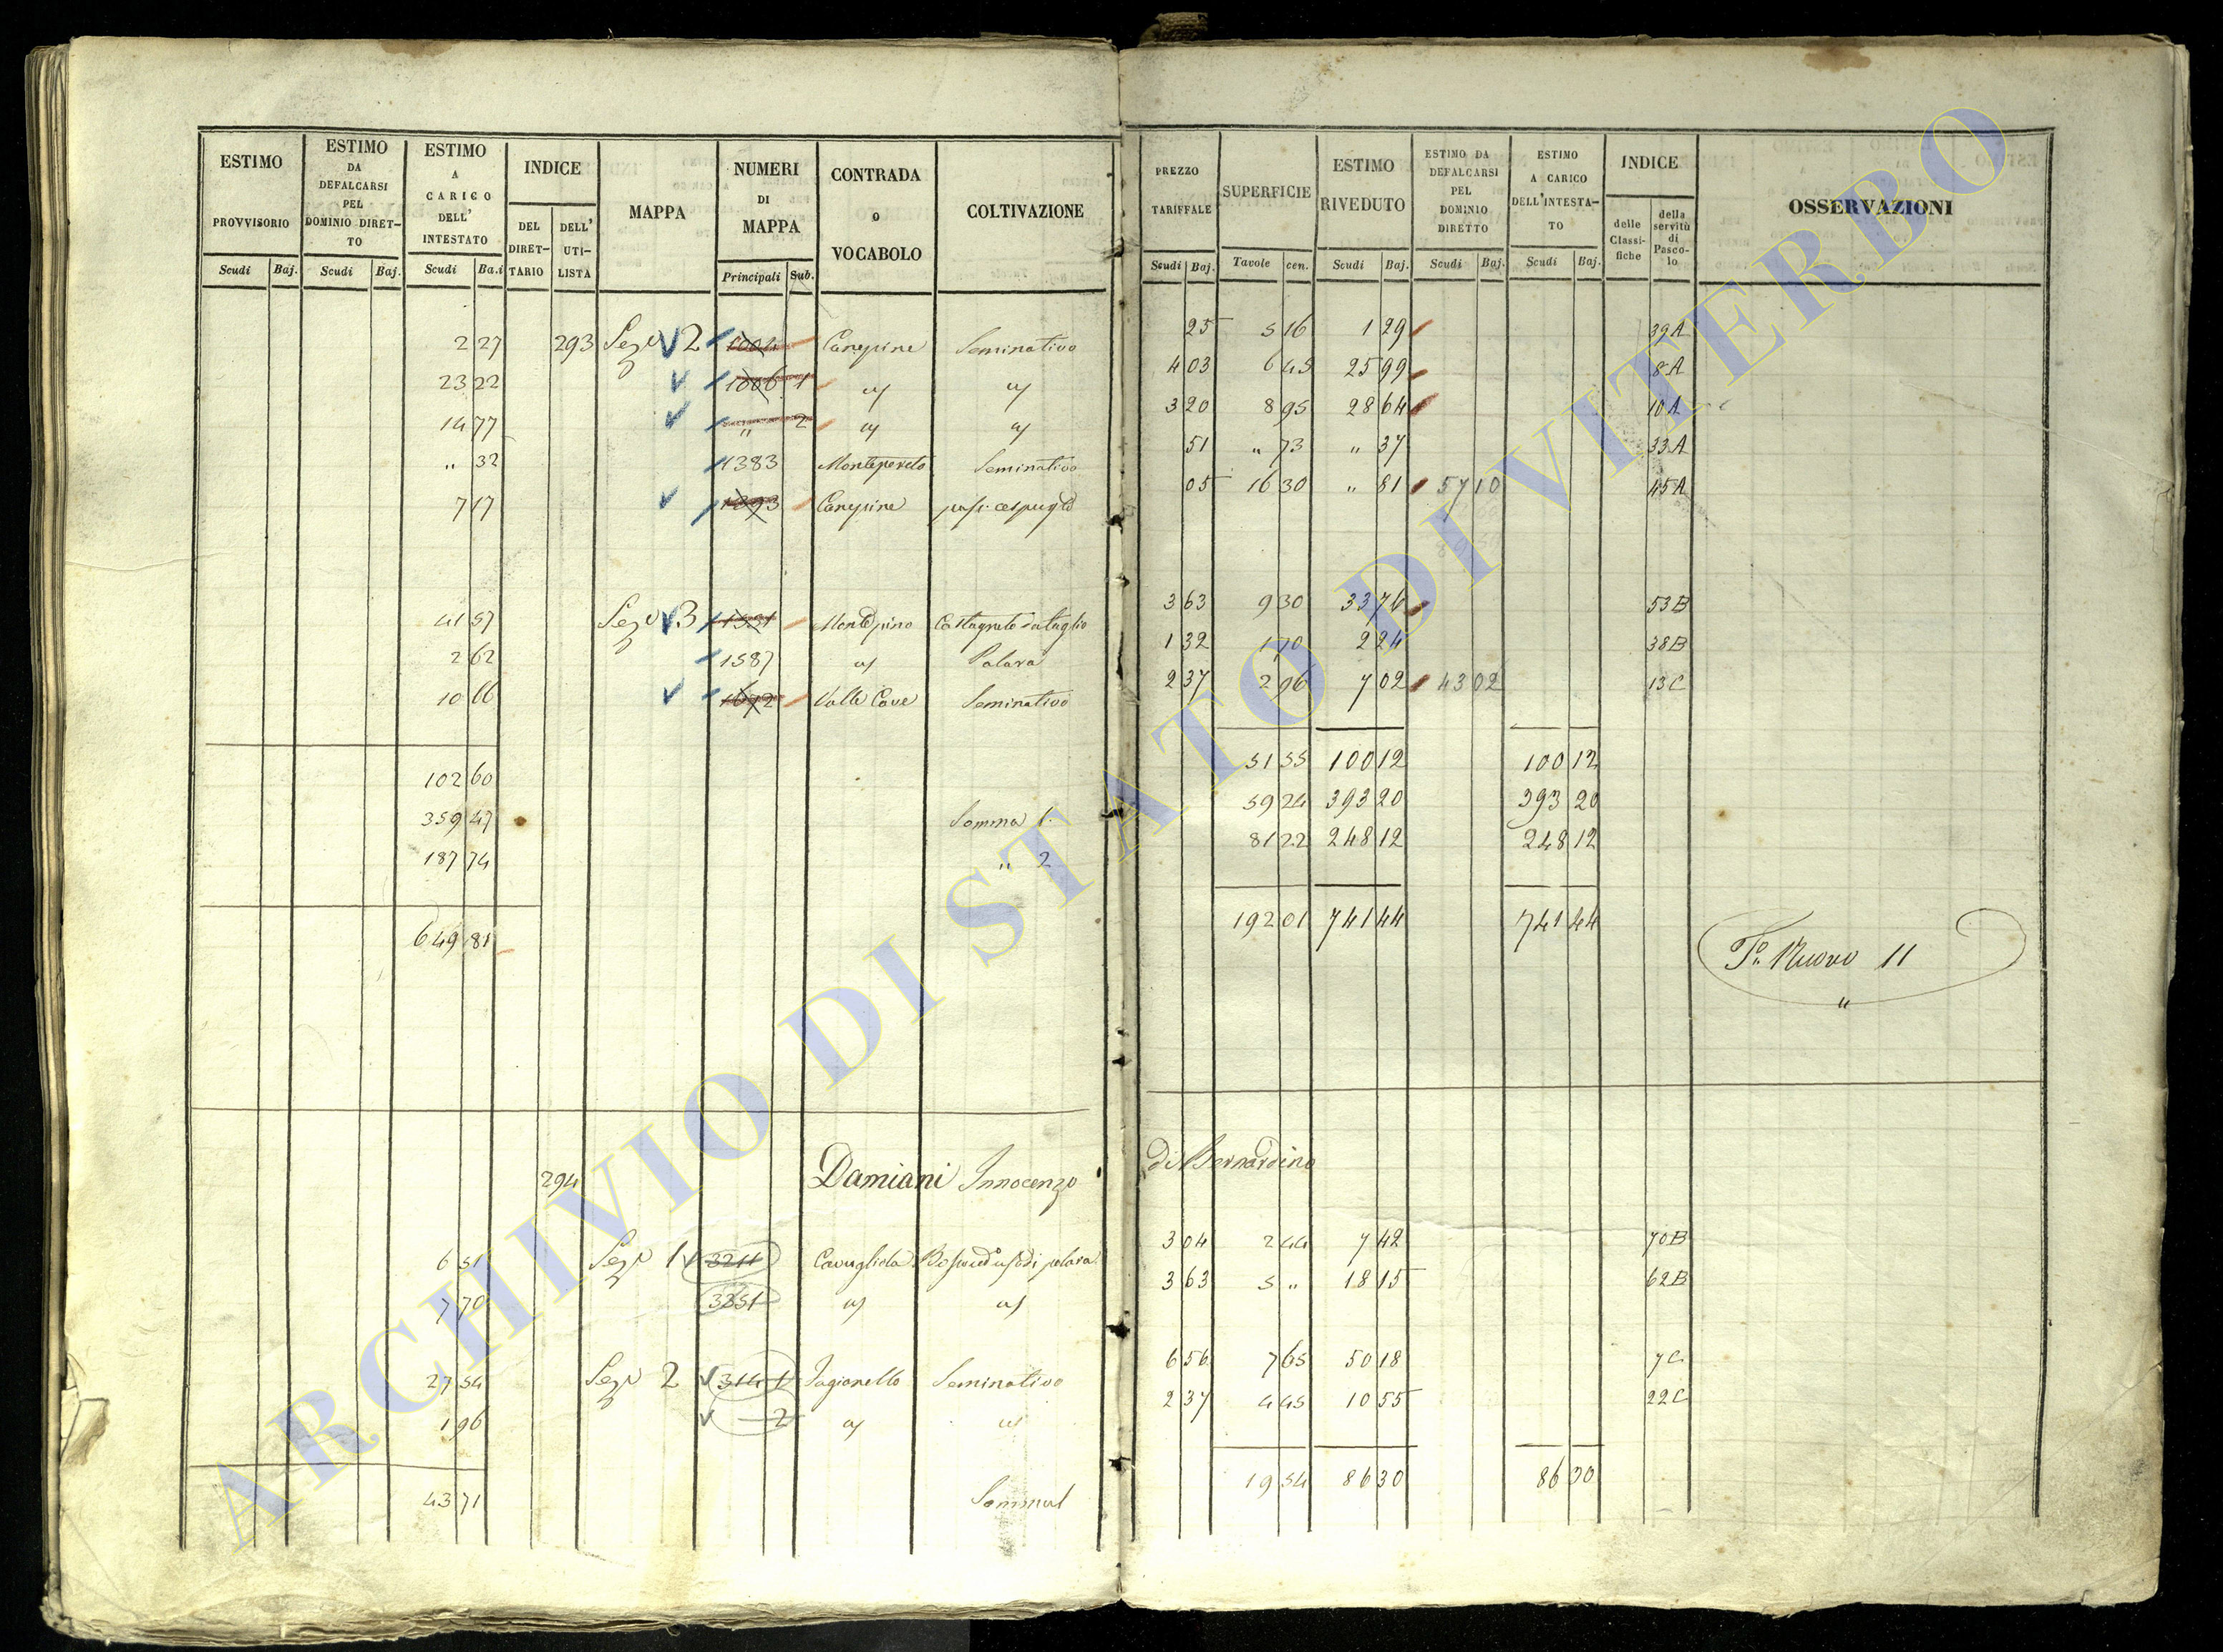 ESTIMO PROVVISORIO Scudi Baj.
ESTIMO DA DEFALCARSI PEL DOMINIO DIRETTO Scudi Baj.
ESTIMO A CARICO DELL' INTESTATO Scudi Ba.i
INDICE DEL DIRETTARIO DELL' UTILISTA
MAPPA
NUMERI DI MAPPA Principali Sub.
CONTRADA o VOCABOLO
COLTIVAZIONE
PREZZO TARIFFALE Scudi Baj.
SUPERFICIE Tavole cen.
ESTIMO RIVEDUTO Scudi Baj.
ESTIMO DA DEFALCARSI PEL DOMINIO DIRETTO Scudi Baj.
ESTIMO A CARICO DELL'INTESTATO Scudi Baj.
INDICE delle Classifiche della servitù di Pascolo
OSSERVAZIONI
2 27 293 Sez 2 1004 Canepine Seminativo 25 5 16 1 29 39A
23 22 1006 1 4 03 6 45 25 99 8A
14 77 " 2 3 20 8 95 28 64 10A
" 32 1383 Seminativo 51 " 73 " 37 33A
7 17 1393 Canepine 05 16 30 " 81 57 10 45A
41 57 Sez 3 1531 3 63 9 30 33 76 53B
2 62 1587 Palara 1 32 1 70 2 24 38B
10 66 1672 Valle Cave Seminativo 2 37 2 96 7 02 43 02 13C
102 60 51 55 100 12 100 12
359 47 Somma 1. 59 24 393 20 393 20
187 74 " 2 81 22 248 12 248 12
649 81 192 01 741 44 741 44
To. Nuovo 11
"
294 Damiani Innocenzo di Bernardino
6 51 Sez 1 3211 3 04 2 44 7 42 70B
7 70 3251 3 63 5 " 18 15 62B
27 54 Sez 2 314 1 Seminativo 6 56 7 65 50 18 7C
1 96 2 2 37 4 45 10 55 22C
43 71 19 54 86 30 86 30
ARCHIVIO DI STATO DI VITERBO